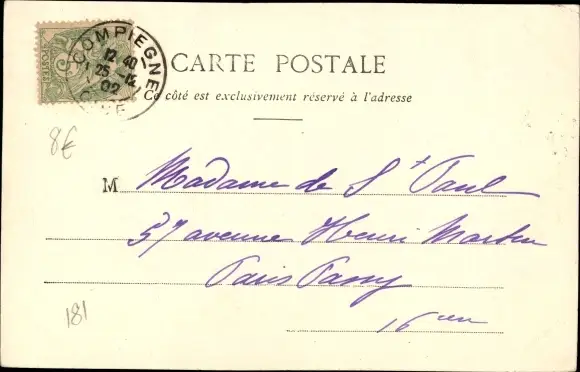 POSTES
COMPIEGNE
12 40
25 -12
02
OISE
CARTE POSTALE
Ce côté est exclusivement réservé à l'adresse
8€
M Madame de St Paul
57 avenue Henri Martin
Paris Passy
16 em
181